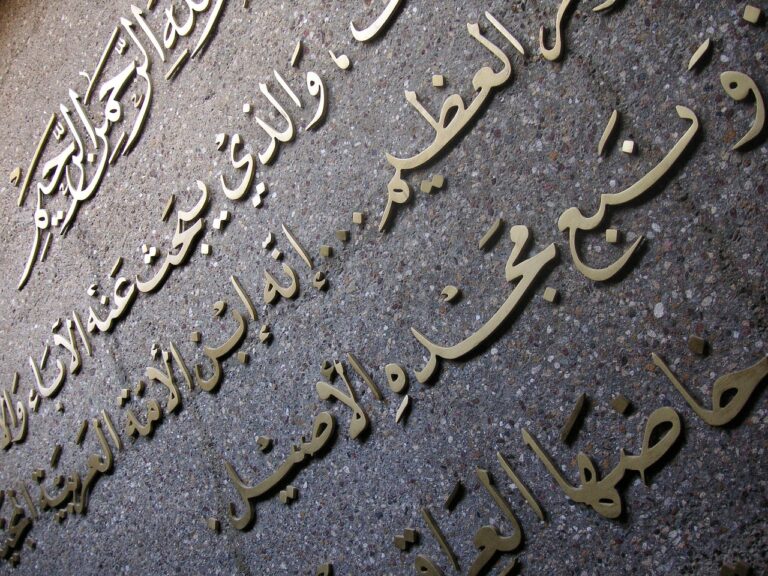 الله الرَّحمنِ الرَّحِيمِ
، وَالذيْ يبحَث عَنْه الآبَاء
العظيم ... إنّه ابْن الأمّة العَربيَّة
ونبع مجْدهِ الأصيل.
خاضهَا